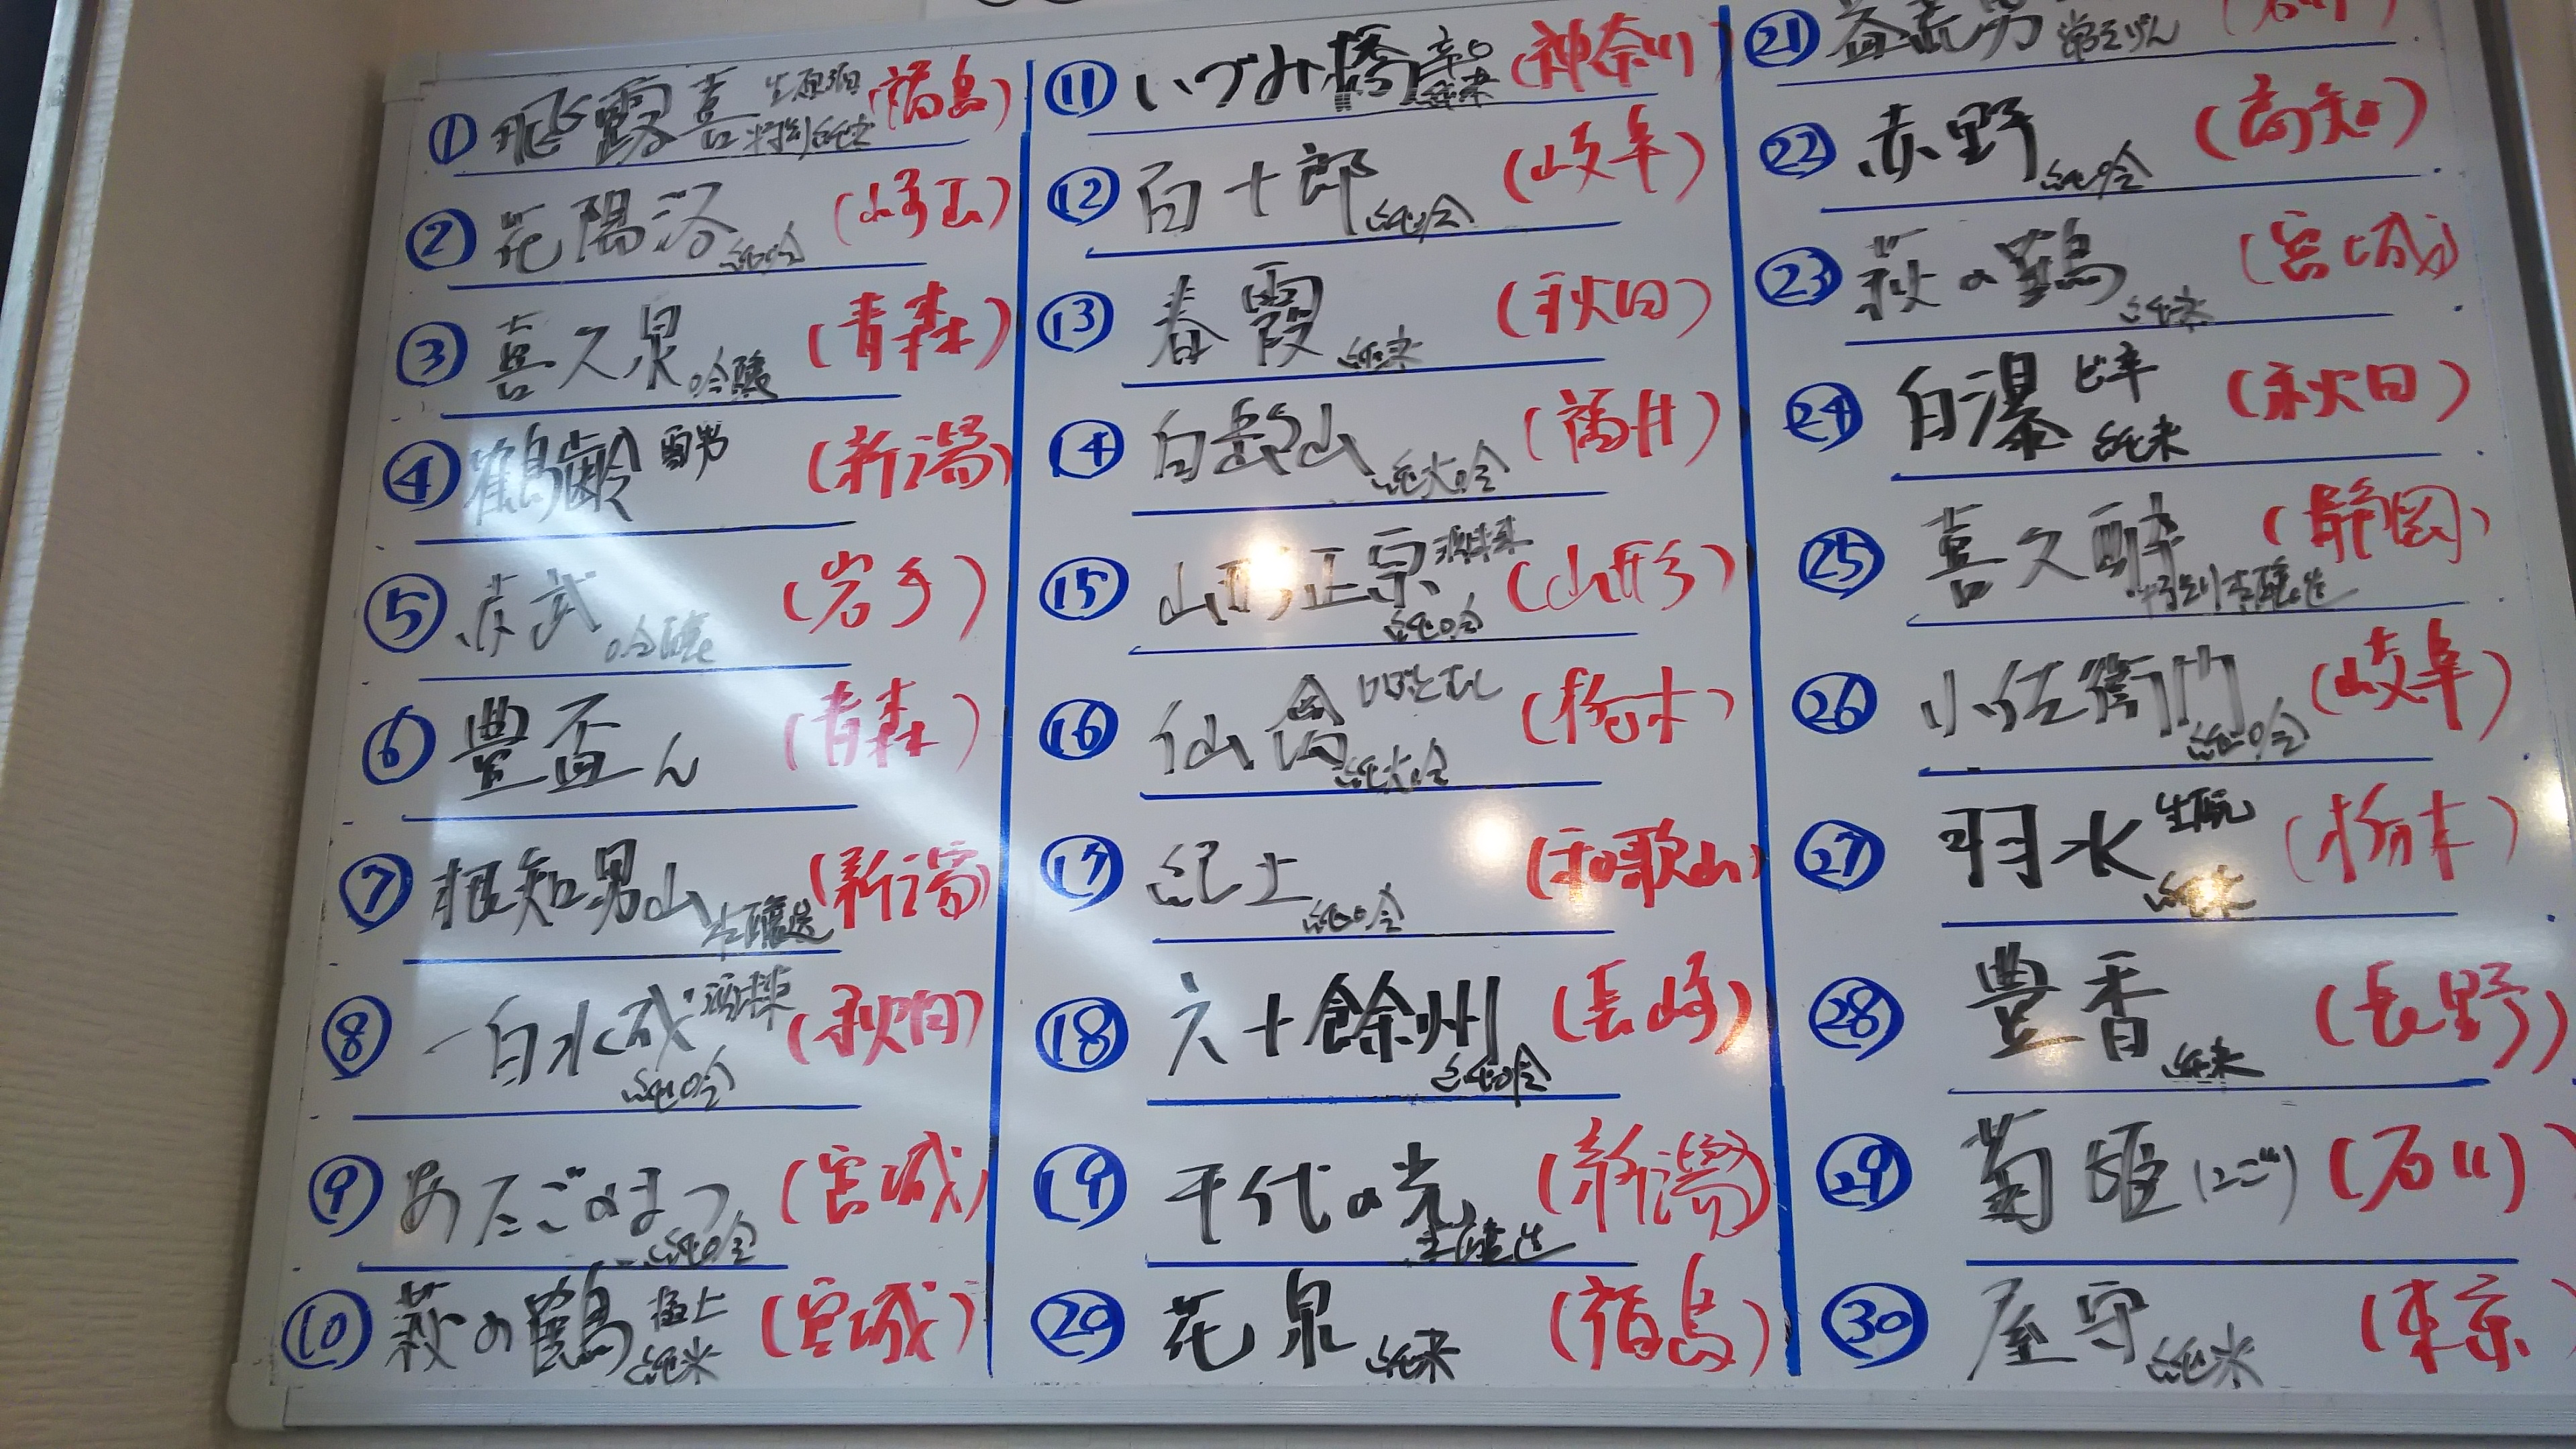 ① 飛露喜 生原酒 特別純米 (福島)
② 花陽浴 純吟 (埼玉)
③ 喜久泉 吟醸 (青森)
④ 鶴齢 雪男 (新潟)
⑤ 赤武 吟醸 (岩手)
⑥ 豊盃 ん (青森)
⑦ 根知男山 本醸造 (新潟)
⑧ 一白水成 酒未来 純吟 (秋田)
⑨ あたごのまつ 純吟 (宮城)
⑩ 萩の鶴 極上 純米 (宮城)
⑪ いづみ橋 辛口 純米 (神奈川)
⑫ 百十郎 純吟 (岐阜)
⑬ 春霞 純米 (秋田)
⑭ 白岳山 純大吟 (福井)
⑮ 山形正宗 酒未来 純吟 (山形)
⑯ 仙禽 純大吟 (栃木)
⑰ 紀土 純吟 (和歌山)
⑱ 六十餘州 純吟 (長崎)
⑲ 千代の光 本醸造 (新潟)
⑳ 花泉 純米 (福島)
㉑ 益荒男 (石川)
㉒ 赤野 純吟 (高知)
㉓ 萩の鶴 純米 (宮城)
㉔ 白瀑 ド辛 純米 (秋田)
㉕ 喜久酔 特別本醸造 (静岡)
㉖ 小左衛門 純吟 (岐阜)
㉗ 羽水 生酛 純米 (栃木)
㉘ 豊香 純米 (長野)
㉙ 菊姫 (にごり) (石川)
㉚ 屋守 純米 (東京)